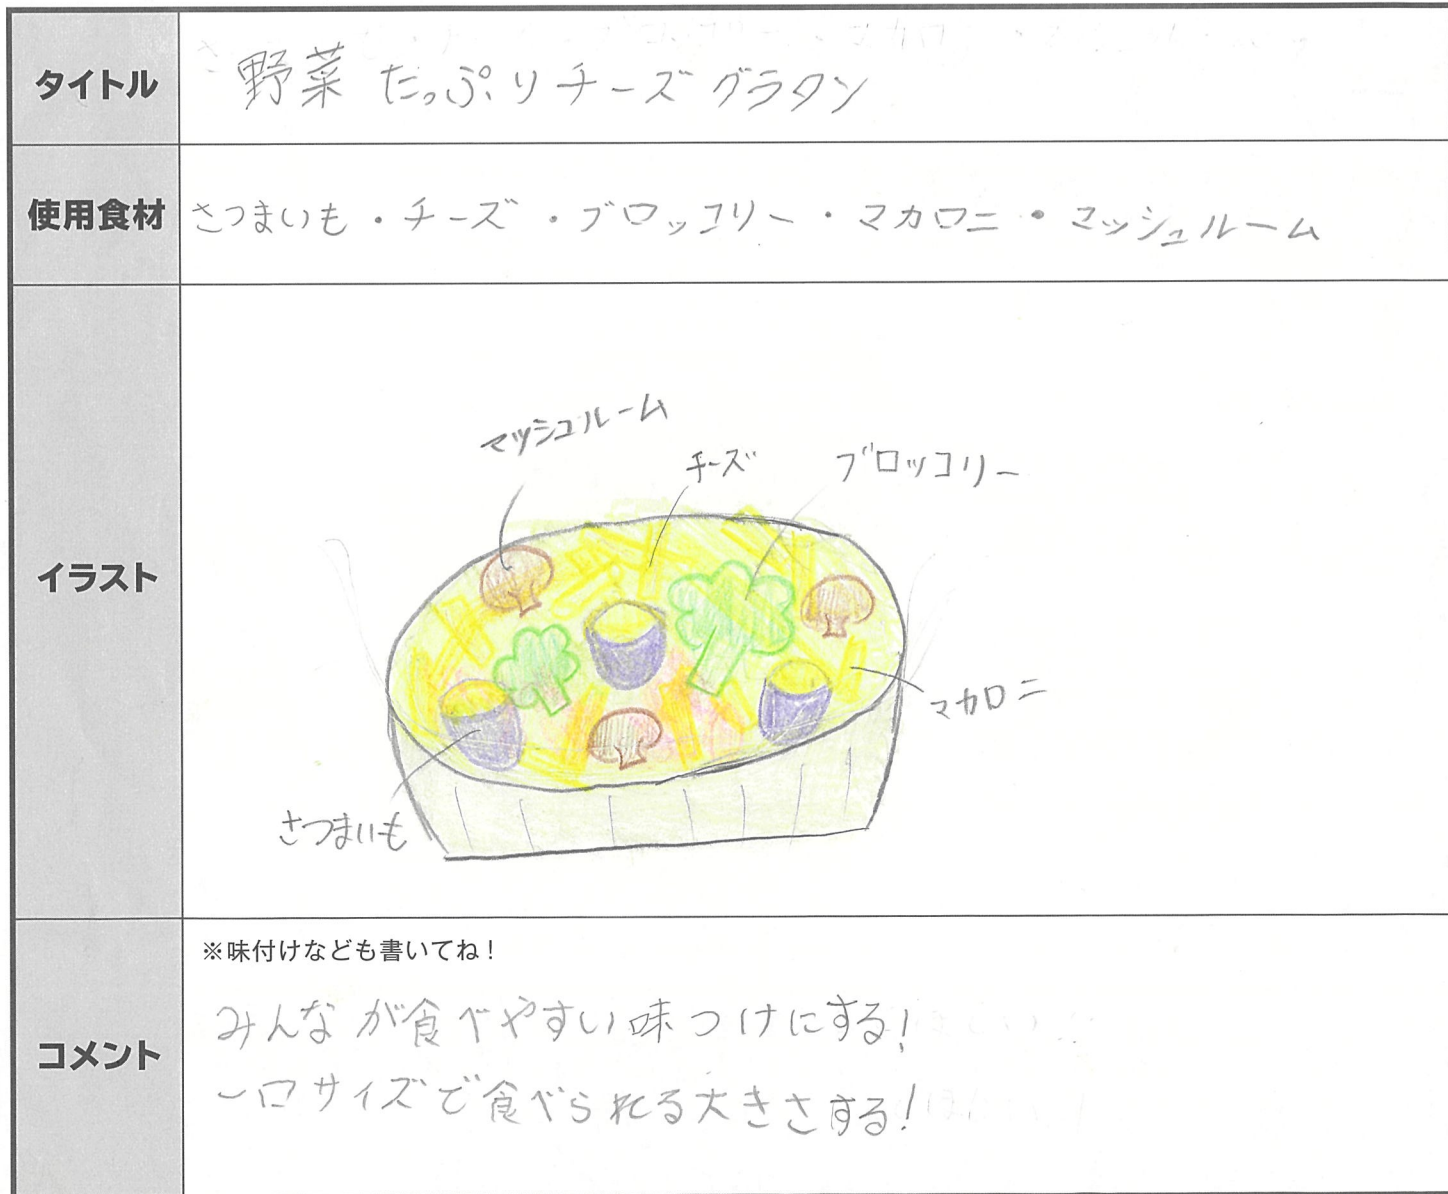 タイトル
野菜たっぷりチーズグラタン
使用食材
さつまいも・チーズ・ブロッコリー・マカロニ・マッシュルーム
イラスト
マッシュルーム
チーズ
ブロッコリー
マカロニ
さつまいも
コメント
※味付けなども書いてね!
みんなが食べやすい味つけにする!
一口サイズで食べられる大きさする!